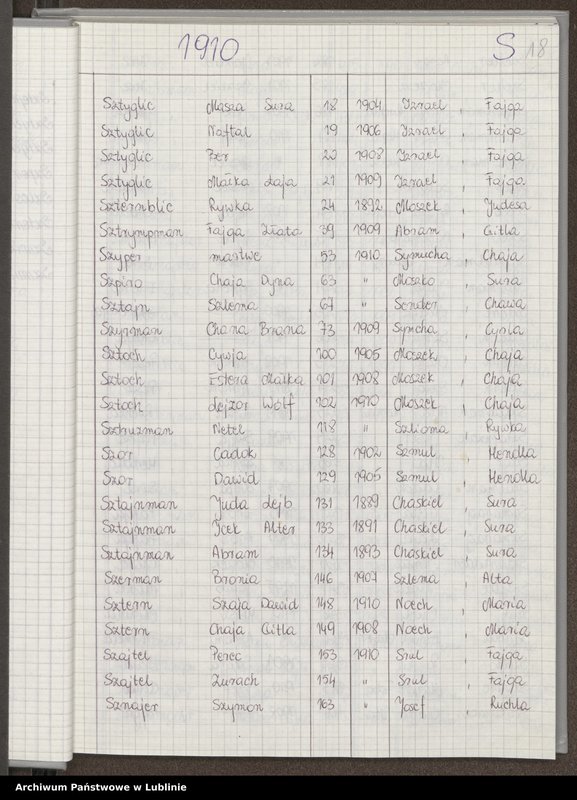 1910 S 18
Sztyglic Masza Sura 18 1904 Izrael, Fajga
Sztyglic Naftal 19 1906 Izrael, Fajga
Sztyglic Ber 20 1908 Izrael, Fajga
Sztyglic Małka Łaja 21 1909 Izrael, Fajga
Szternblic Rywka 24 1892 Moszek, Judesa
Sztrympman Fajga Złata 39 1909 Abram, Gitla
Szyper martwe 53 1910 Symcha, Chaja
Szpiro Chaja Dyna 63 " Moszko, Sura
Sztajn Szlema 67 " Sender, Chawa
Szyrman Chana Brana 73 1909 Symcha, Cyrla
Sztoch Cywja 100 1905 Moszek, Chaja
Sztoch Estera Małka 101 1908 Moszek, Chaja
Sztoch Lejzor Wolf 102 1910 Moszek, Chaja
Sztruzman Netel 118 " Szlioma, Rywka
Szor Cadok 128 1902 Szmul, Hendla
Szor Dawid 129 1905 Szmul, Hendla
Sztajnman Juda Lejb 131 1889 Chaskiel, Sura
Sztajnman Icek Alter 133 1891 Chaskiel, Sura
Sztajnman Abram 134 1893 Chaskiel, Sura
Szerman Bronia 146 1907 Szlema, Alta
Sztern Szaja Dawid 148 1910 Noech, Maria
Sztern Chaja Gitla 149 1908 Noech, Maria
Szajtel Perec 153 1910 Srul, Fajga
Szajtel Zurach 154 " Srul, Fajga
Sznajer Szymon 163 " Josef, Ruchla
Archiwum Państwowe w Lublinie